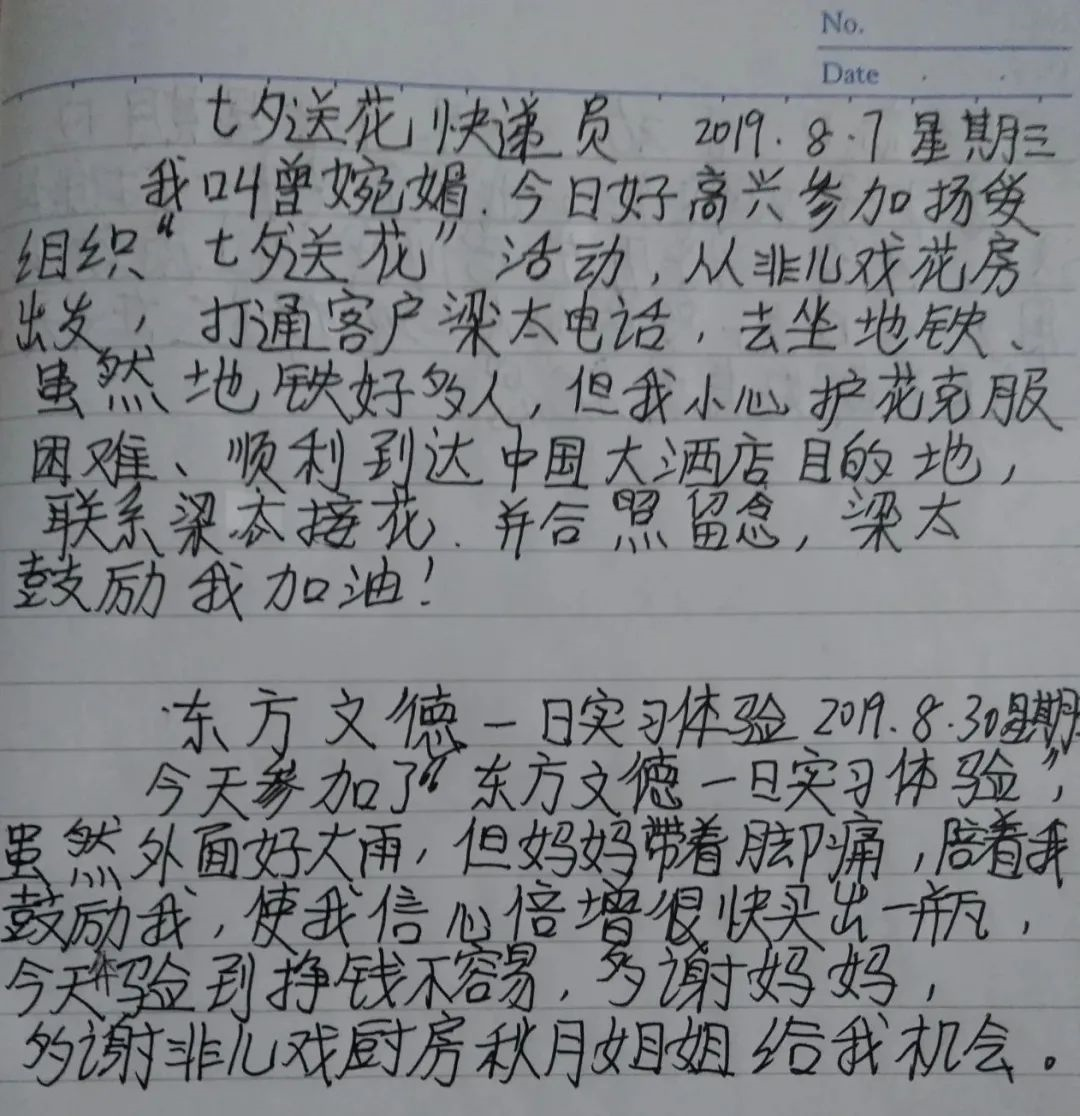 No.
Date
七夕送花快递员 2019.8.7星期三
我叫曾婉媚.今日好高兴参加扬爱
组织“七夕送花”活动,从非儿戏花房
出发,打通客户梁太电话,去坐地铁、
虽然地铁好多人,但我小心护花克服
困难、顺利到达中国大酒店目的地,
联系梁太接花.并合照留念,梁太
鼓励我加油!
东方文德一日实习体验2019.8.30星期
今天参加了“东方文德一日实习体验”,
虽然外面好大雨,但妈妈带着脚痛,陪着我
鼓励我,使我信心倍增很快买出一瓶,
今天体验到挣钱不容易,多谢妈妈,
多谢非儿戏厨房秋月姐姐给我机会。